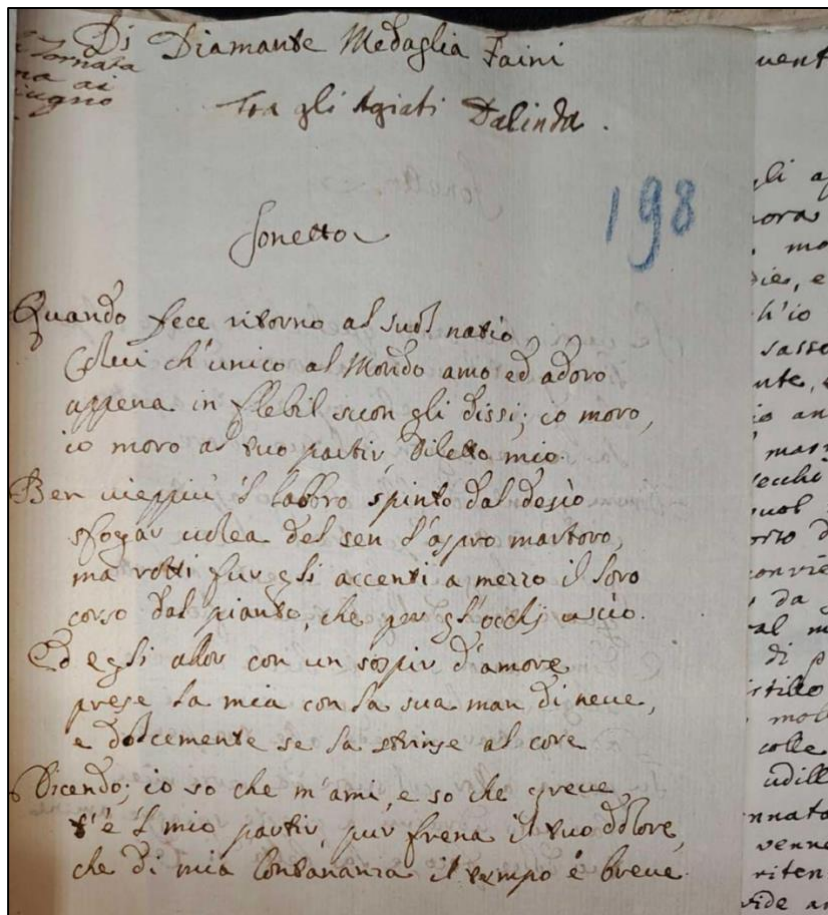 Di Diamante Medaglia Faini
Tornata
ai
giugno
Tra gli Agiati Dalinda.
198
Sonetto
Quando fece ritorno al suol natìo
Colui ch'unico al Mondo amo ed adoro
appena in flebil suon gli dissi; io moro,
io moro al tuo partir, diletto mio.
Ben vieppiù 'l labbro spinto dal desìo
sfogar volea del sen l'aspro martoro,
ma rotti fur gli accenti a mezzo il loro
corso dal pianto, che per gl'occhj uscìo.
Ed egli allor con un sospir d'amore
prese la mia con la sua man di neve,
e dolcemente se la strinse al core
Dicendo; io so che m'ami, e so che greve
t'è 'l mio partir, pur frena il tuo dolore,
che di mia lontananza il tempo è breve.